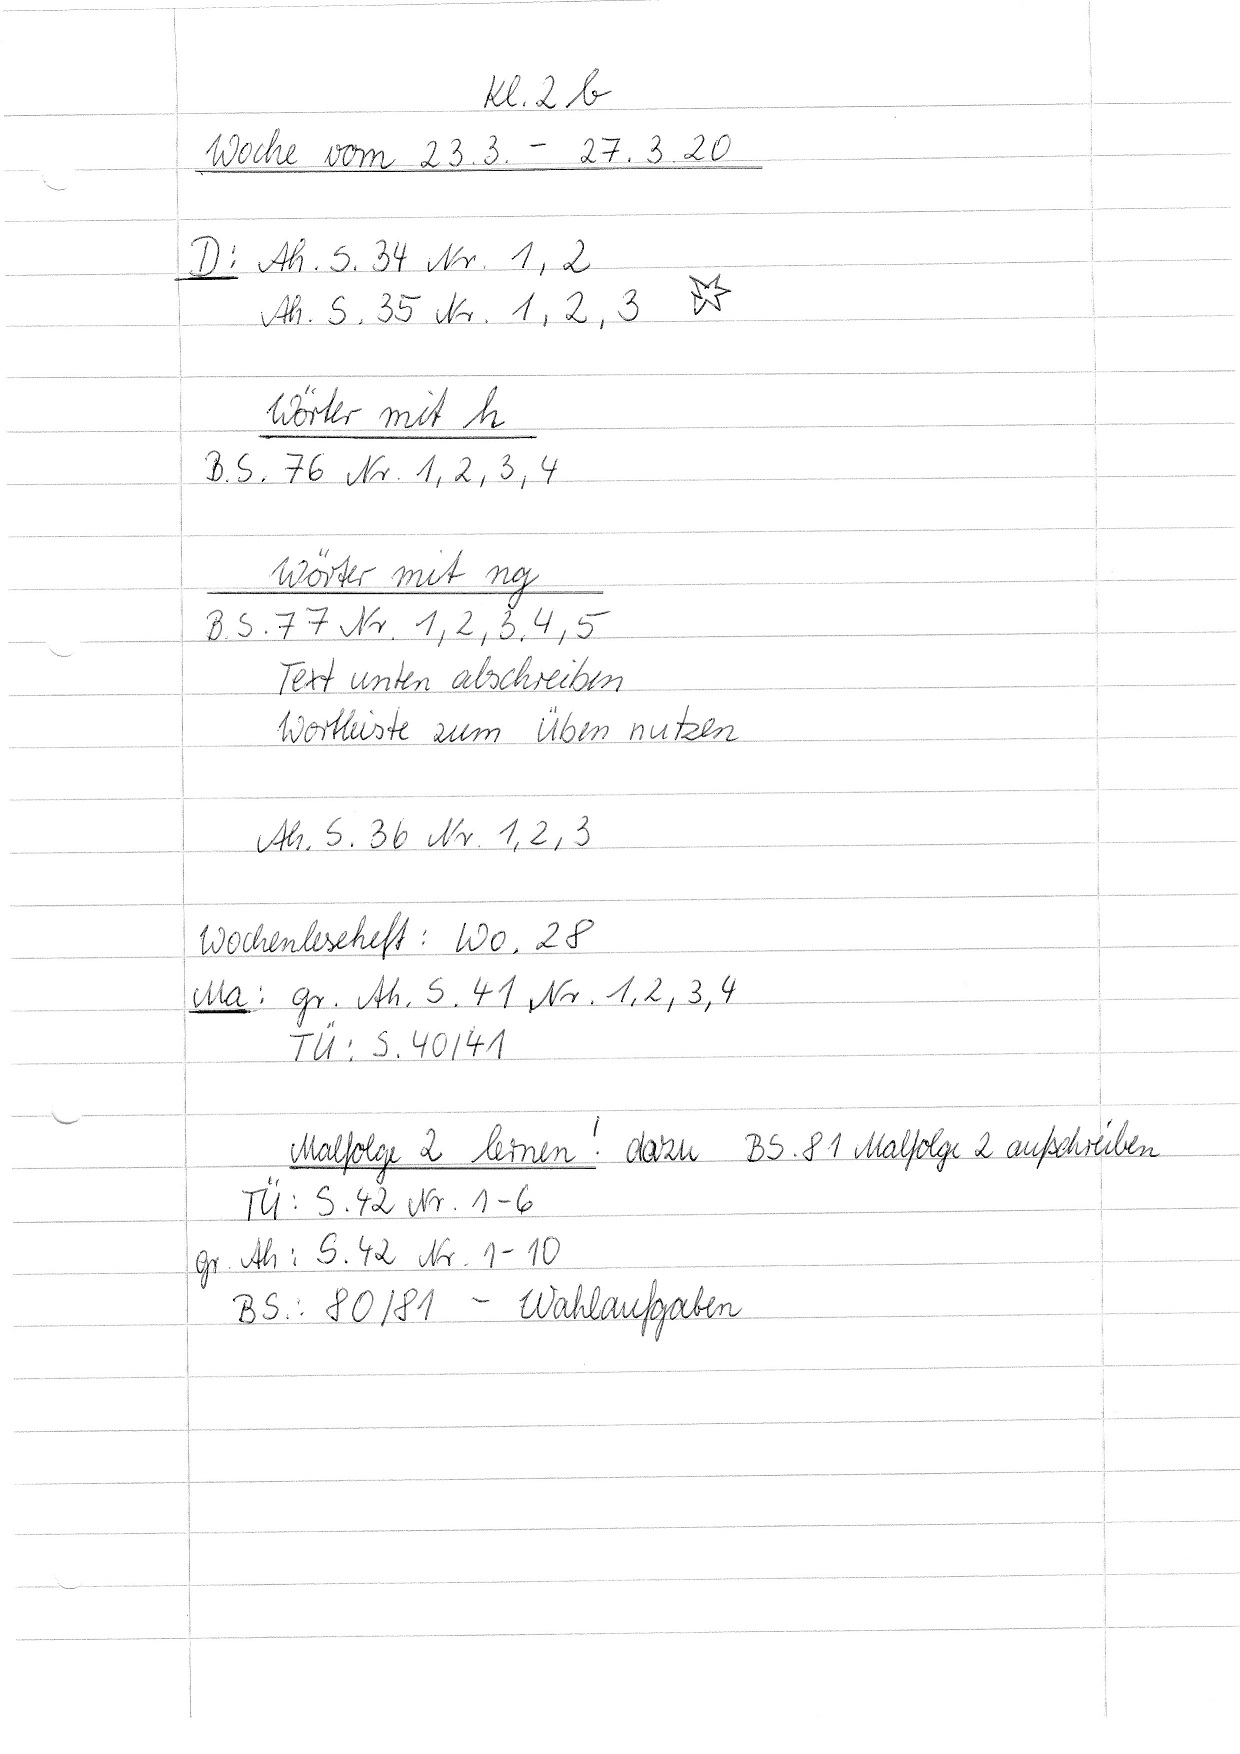 Kl. 2 b
Woche vom 23.3. - 27.3.20
D: Ah. S. 34 Nr. 1, 2
Ah. S. 35 Nr. 1, 2, 3
Wörter mit h
B.S. 76 Nr. 1, 2, 3, 4
Wörter mit ng
B.S. 77 Nr. 1, 2, 3, 4, 5
Text unten abschreiben
Wortleiste zum Üben nutzen
Ah. S. 36 Nr. 1, 2, 3
Wochenleseheft: Wo. 28
Ma: gr. Ah. S. 41 Nr. 1, 2, 3, 4
TÜ: S. 40/41
Malfolge 2 lernen! dazu BS. 81 Malfolge 2 aufschreiben
TÜ: S. 42 Nr. 1-6
gr. Ah: S. 42 Nr. 1-10
BS.: 80/81 - Wahlaufgaben